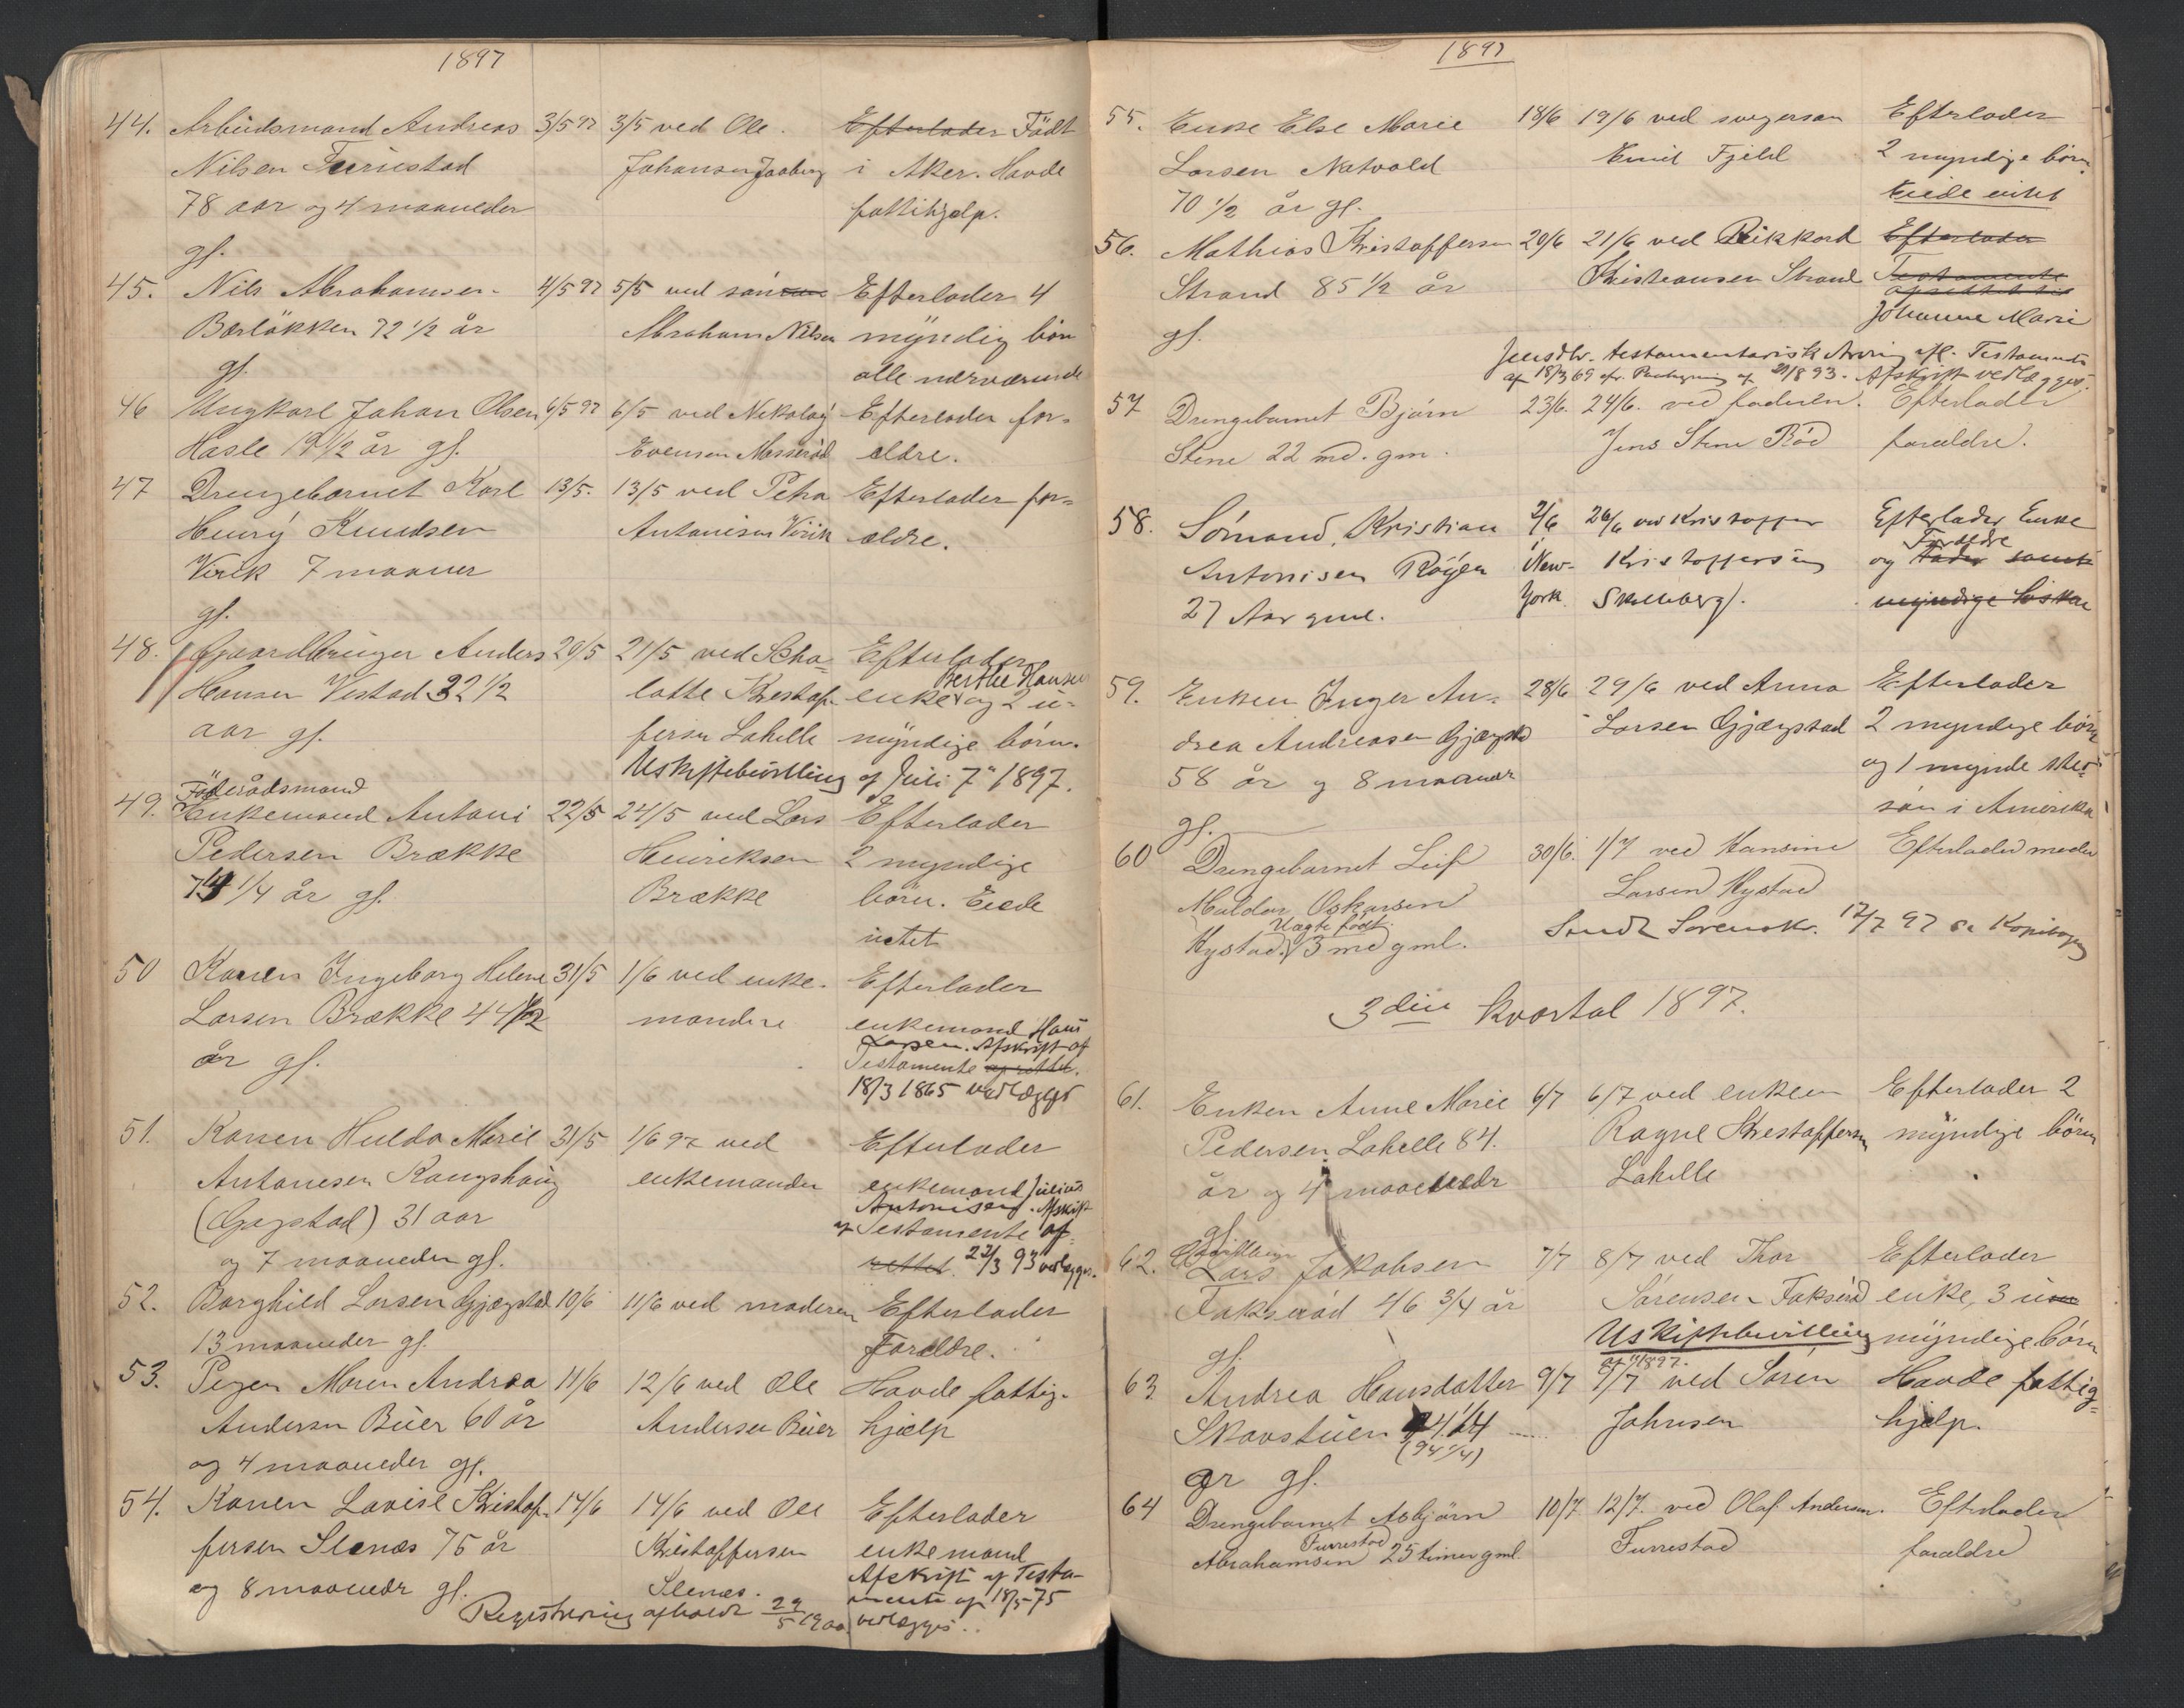 1897
44. Arbeidsmand Andreas 3/5 97 3/5 ved Ole Efterlader Födt
Nilsen Furrestad Johansen Jaaberg i Aker. Havde
78 aar og 4 maaneder fattihjelp.
gl.
45. Nils Abrahamsen 4/5 97 5/5 ved sön Efterlader 4
Bærløkken 72 1/2 år Abraham Nilsen myndig børn
gl. alle nærværende
46 Ungkarl Johan Olsen 6/5 97 6/5 ved Nikolay Efterlader for-
Hasle 19 1/2 år gl. Evensen Messeröd eldre.
47 Drengebarnet Karl 13/5. 13/5 ved Petra Efterlader for-
Henry Knudsen Antonisen Virik ældre.
Virik 7 maaner
gl.
48. Gaardbruger Anders 20/5 21/5 ved Scha- Efterlader
Hansen Vestad 32 1/2 lotte Kristof- enke Berthe Hansen og 2 u-
aar gl. fersen Lahelle myndige børn.
Uskiftebevilling af Juli 7de 1897.
Föderådsmand
49. Enkemand Antoni 22/5 24/5 ved Lars Efterlader
Pedersen Brække Henriksen 2 myndige
74 1/4 år gl. Brække börn. Eiede
intet
50 Konen Ingeborg Helene 31/5 1/6 ved enke- Efterlader
Larsen Brække 44 1/2 manden enkemand Hans
år gl. Larsen. Afskrift af
Testamente oprettet.
18/3 1865 vedlægges
51. Konen Hulda Marie 31/5 1/6 97 ved Efterlader
Antonesen Kongshaug enkemanden enkemand Julius
(Gogstad) 31 aar Antonisen. Afskrift
og 7 maaneder gl. af Testamente af
rettet. 22/3 93 vedlægges.
52. Borghild Larsen Gjøgstad 10/6 11/6 ved moderen Efterlader
13 maaneder gl. Forældre.
53. Pigen Maren Andrea 11/6 12/6 ved Ole Havde fattig-
Andersen Buer 60 år Andersen Buer hjælp
og 4 maaneder gl.
54. Konen Lovise Kristof- 14/6 14/6 ved Ole Efterlader
fersen Stenæs 75 år Kristoffersen enkemand
og 8 maaneder gl. Stenæs. Afskrift af Testa-
mente af 18/5-75
Registrering afholdt 29/5 1900 vedlægges.
1897
55. Enke Else Marie 18/6 19/6 ved svigersøn Efterlader
Larsen Natvald Emil Fjeld 2 myndige børn
70 1/2 år gl. Eiede intet
56. Mathias Kristoffersen 20/6 21/6 ved Rikkard Efterlader
Strand 85 1/2 år Kristiansen Strand Testamente
oprettet til
gl. Johanne Marie
Jensdtr. testamentarisk Arving ifl. Testamente
af 18/3 69 Paategning af 21/8 93. Afskrift vedlægges.
57 Drengebarnet Bjørn 23/6. 24/6. ved faderen. Efterlader
Stene 22 md. gm. Jens Stene Röd forældre.
58. Sömand, Kristian 2/6 26/6 ved Kristoffer Efterlader Enke
Antonisen Röyen New- Kristoffersen og Fader Forældre samt
27 Aar gml. York. Skelleberg. myndige Søskende
59. Enken Inger An- 28/6 29/6 ved Anna Efterlader
drea Andreasen Gjøgstad Larsen Gjøgstad 2 myndige børn
58 år og 8 maaneder og 1 mynde sted-
gl. sön i Amerika
60 Drengebarnet Leif 30/6. 1/7 ved Hansine Efterlader moder
Haldor Oskarsen Larsen Hystad
Hystad. Uægte født 3 md gml. Sendt Sorensk. 12/7 97 se Kopibogen
3die kvartal 1897.
61. Enken Anne Marie 6/7 6/7 ved enken Efterlader 2
Pedersen Lahelle 84. Ragne Kristoffersen myndige börn
år og 4 maaneder Lahelle
gl.
62. Lars Jakobsen 7/7 8/7 ved Thor Efterlader
Fokseröd 46 3/4 år Sörensen Fokseröd enke, 3 u
gl. Uskiftebevilling myndige börn
63. Andrea Hansdatter 9/7 9/7 ved Sören Havde fattig-
Skovstuen 94 1/4 Johnsen hjelp.
(94 1/4)
år gl.
64 Drengebarnet Asbjørn 10/7 12/7. ved Olaf Andersen. Efterlader
Abrahamsen Furrestad 25 timer gml. Furrestad forældre